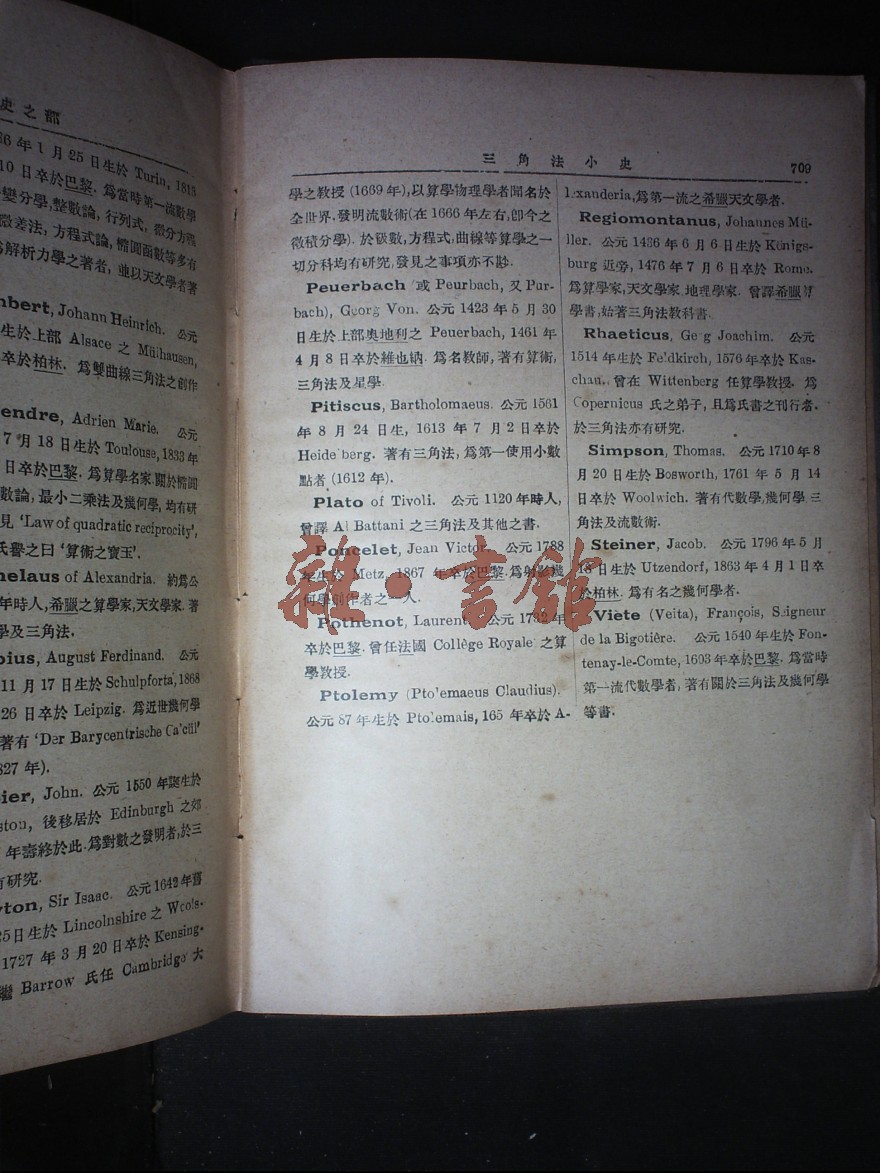 史之部
66 年 1 月 25 日生於 Turin, 1813
10 日卒於巴黎. 爲當時第一流數學
變分學, 整數論, 行列式, 微分方程
微差法, 方程式論, 橢圓函數等多有
爲解析力學之著者, 並以天文學者著
nbert, Johann Heinrich. 公元
生於上部 Alsace 之 Mülhausen,
卒於柏林. 爲雙曲線三角法之創作
endre, Adrien Marie. 公元
7 月 18 日生於 Toulouse, 1833 年
日卒於巴黎. 爲算學名家. 關於橢圓
數論, 最小二乘法及幾何學, 均有研
見 'Law of quadratic reciprocity',
氏譽之曰 '算術之寶玉'.
nelaus of Alexandria. 約爲公
年時人, 希臘之算學家, 天文學家. 著
學及三角法.
bius, August Ferdinand. 公元
11 月 17 日生於 Schulpforta, 1868
26 日卒於 Leipzig. 爲近世幾何學
著有 'Der Barycentrische Ca'cül'
827 年).
pier, John. 公元 1550 年誕生於
ston, 後移居於 Edinburgh 之郊
年壽終於此. 爲對數之發明者, 於三
有研究.
yton, Sir Isaac. 公元 1642 年舊
25 日生於 Lincolnshire 之 Wools-
1727 年 3 月 20 日卒於 Kensing-
繼 Barrow 氏任 Cambridge 大
三角法小史
709
學之教授 (1669 年), 以算學物理學者聞名於
全世界. 發明流數術 (在 1666 年左右, 卽今之
微積分學). 於級數, 方程式, 曲線等算學之一
切分科均有研究, 發見之事項亦不尠.
Peuerbach (或 Peurbach, 又 Pur-
bach), Georg Von. 公元 1423 年 5 月 30
日生於上部奧地利之 Peuerbach, 1461 年
4 月 8 日卒於維也納. 爲名教師, 著有算術,
三角法及星學.
Pitiscus, Bartholomaeus. 公元 1561
年 8 月 24 日生, 1613 年 7 月 2 日卒於
Heide'berg. 著有三角法, 爲第一使用小數
點者 (1612 年).
Plato of Tivoli. 公元 1120 年時人,
曾譯 Al Battani 之三角法及其他之書.
Poncelet, Jean Victor. 公元 1788
年生於 Metz, 1867 年卒於巴黎. 爲射影幾
何學創作者之一人.
Pothenot, Laurent. 公元 1732 年
卒於巴黎. 曾任法國 Collège Royale 之算
學教授.
Ptolemy (Pto'emaeus Claudius).
公元 87 年生於 Pto'emais, 165 年卒於 A-
lexanderia, 爲第一流之希臘天文學者.
Regiomontanus, Johannes Mü-
ller. 公元 1436 年 6 月 6 日生於 Künigs-
burg 近旁, 1476 年 7 月 6 日卒於 Rome.
爲算學家, 天文學家, 地理學家. 曾譯希臘算
學書, 始著三角法教科書.
Rhaeticus, Ge g Joachim. 公元
1514 年生於 Feldkirch, 1576 年卒於 Kas-
chau. 曾在 Wittenberg 任算學教授. 爲
Copernicus 氏之弟子, 且爲氏書之刊行者.
於三角法亦有研究.
Simpson, Thomas. 公元 1710 年 8
月 20 日生於 Bosworth, 1761 年 5 月 14
日卒於 Woolwich. 著有代數學, 幾何學 三
角法及流數術.
Steiner, Jacob. 公元 1796 年 5 月
18 日生於 Utzendorf, 1863 年 4 月 1 日卒
於柏林. 爲有名之幾何學者.
Viete (Veita), François, Seigneur
de la Bigotière. 公元 1540 年生於 Fon-
tenay-le-Comte, 1603 年卒於巴黎. 爲當時
第一流代數學者, 著有關於三角法及幾何學
等書.
雜·書館